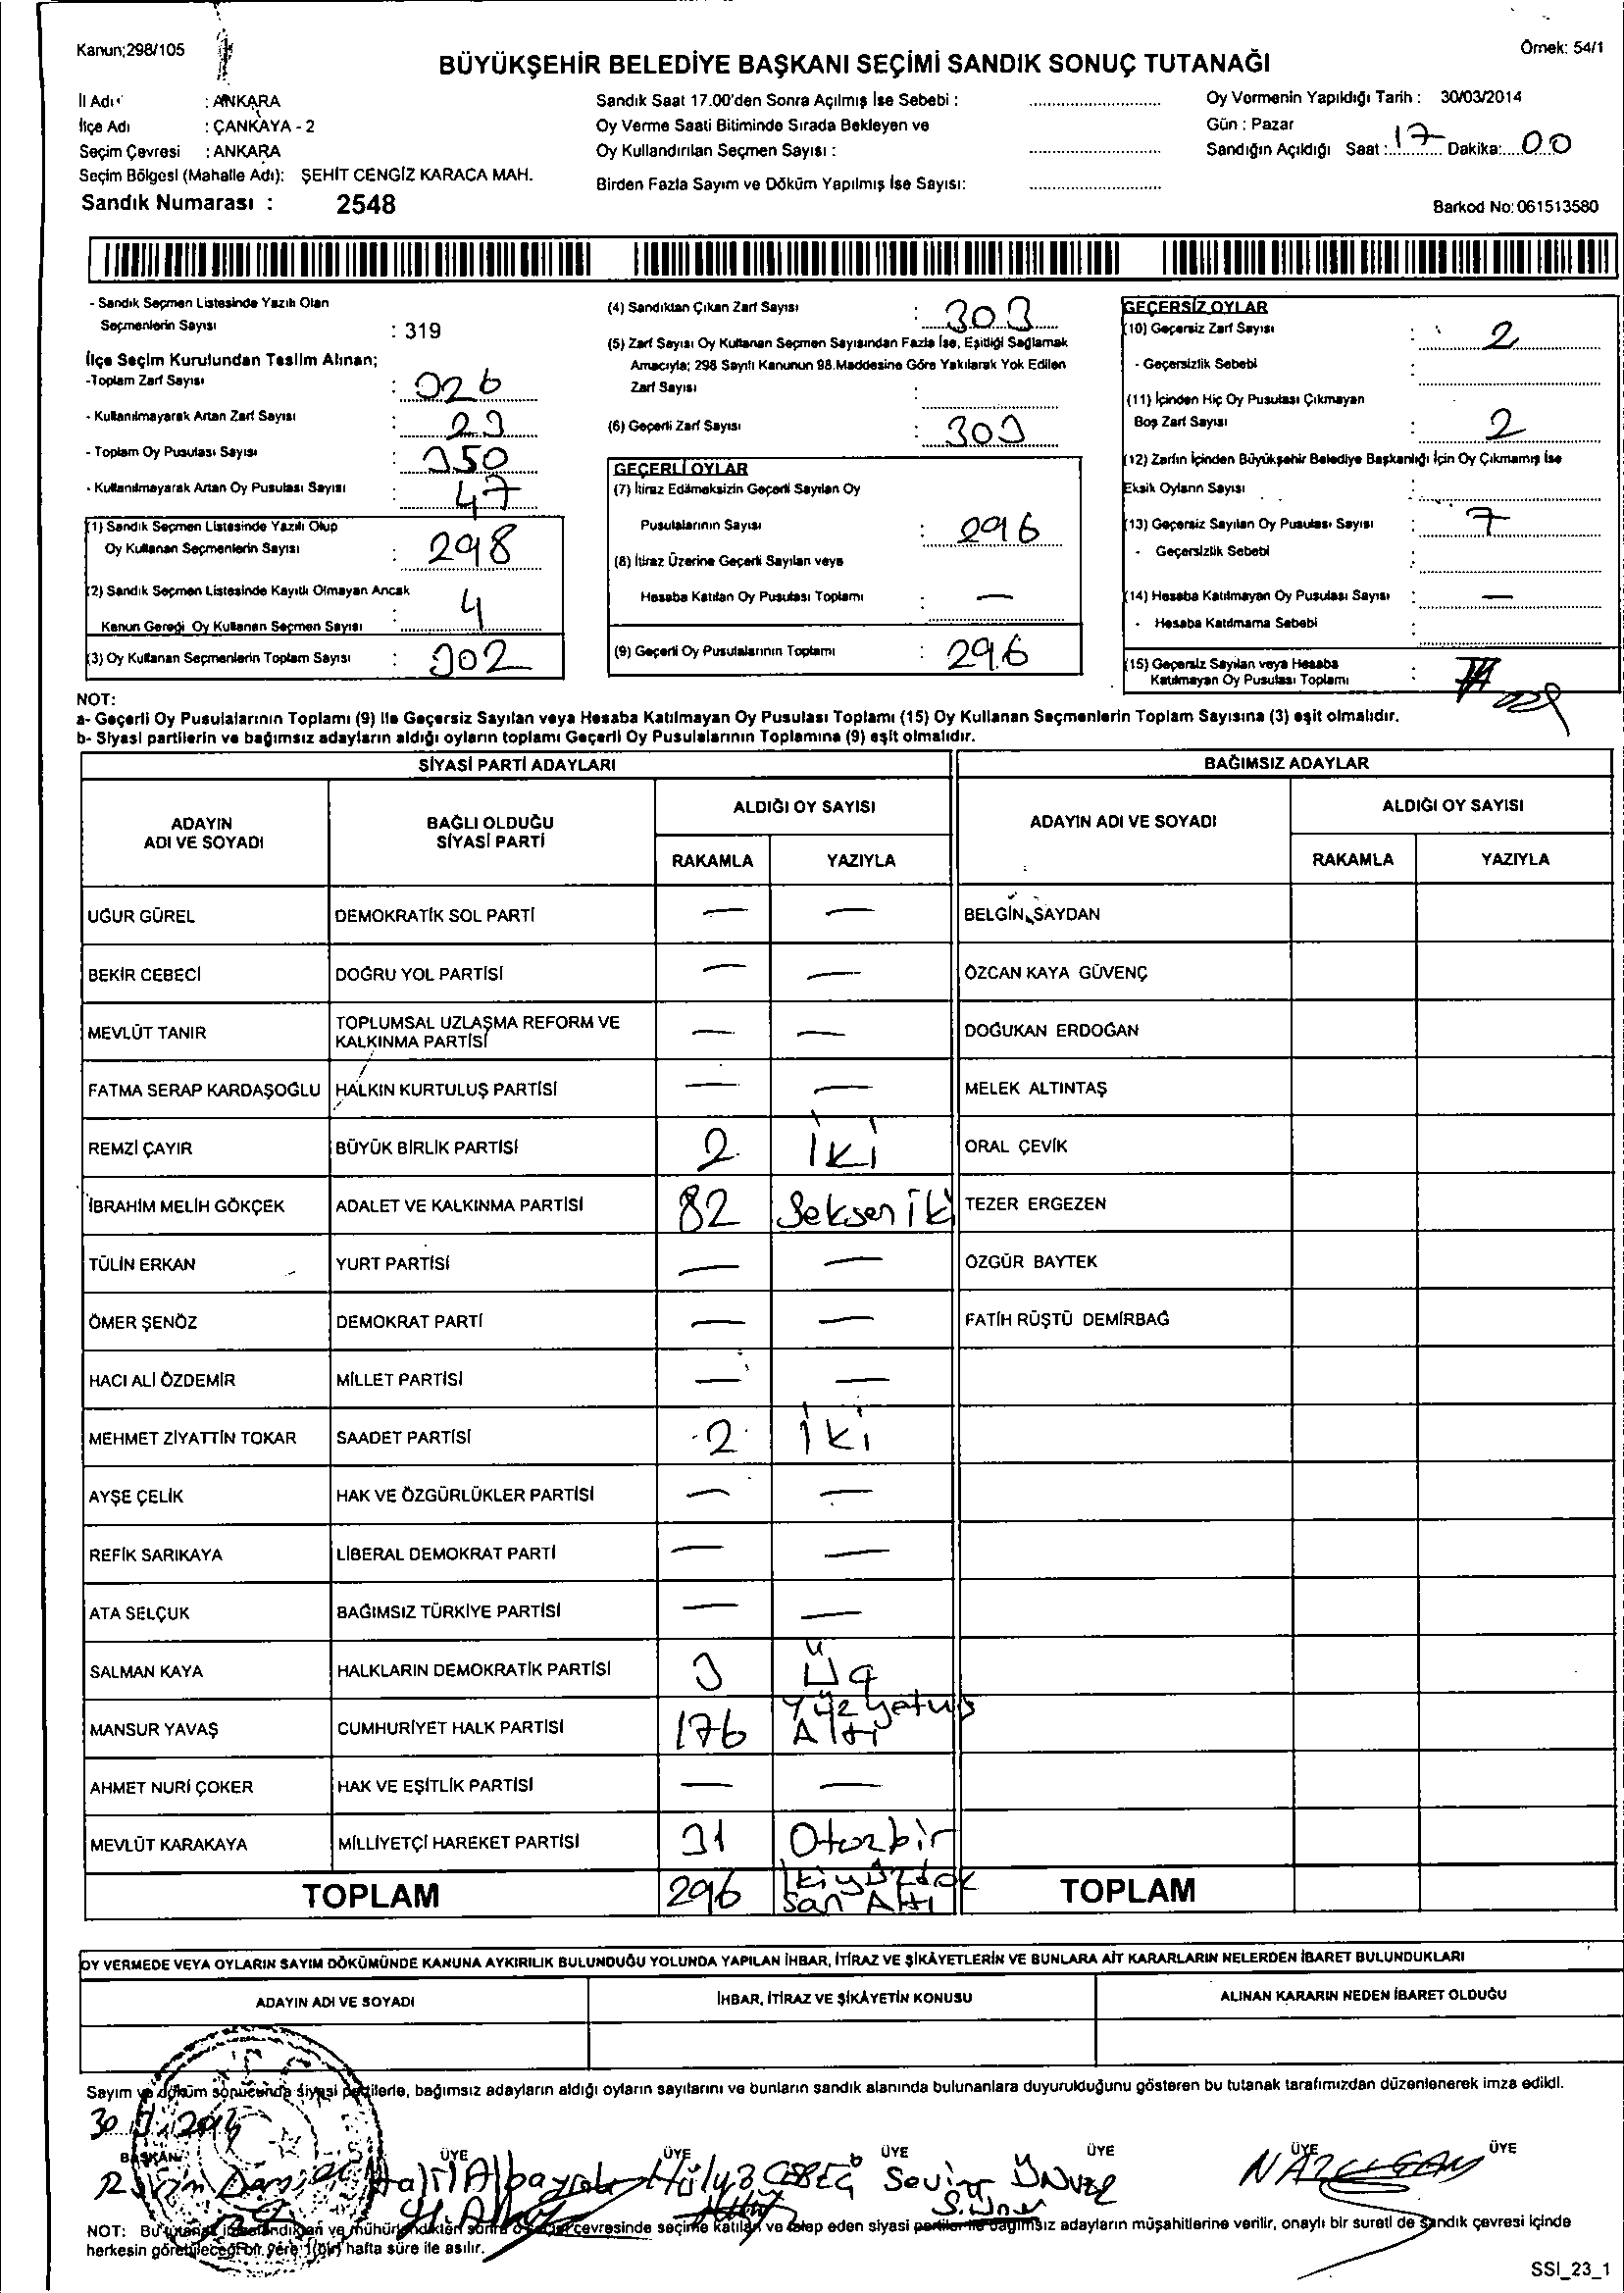 Kanun;298/105
Örnek: 54/1
BÜYÜKŞEHİR BELEDİYE BAŞKANI SEÇİMİ SANDIK SONUÇ TUTANAĞI
İl Adı : ANKARA
İlçe Adı : ÇANKAYA - 2
Seçim Çevresi : ANKARA
Seçim Bölgesi (Mahalle Adı): ŞEHİT CENGİZ KARACA MAH.
Sandık Numarası : 2548
Sandık Saat 17.00'den Sonra Açılmış İse Sebebi :
Oy Verme Saati Bitiminde Sırada Bekleyen ve
Oy Kullandırılan Seçmen Sayısı :
Birden Fazla Sayım ve Döküm Yapılmış İse Sayısı:
Oy Vermenin Yapıldığı Tarih : 30/03/2014
Gün : Pazar
Sandığın Açıldığı Saat : 17 Dakika: 00
Barkod No: 061513580
- Sandık Seçmen Listesinde Yazılı Olan
Seçmenlerin Sayısı : 319
İlçe Seçim Kurulundan Teslim Alınan;
-Toplam Zarf Sayısı : 326
- Kullanılmayarak Artan Zarf Sayısı : 23
- Toplam Oy Pusulası Sayısı : 350
- Kullanılmayarak Artan Oy Pusulası Sayısı : 47
(1) Sandık Seçmen Listesinde Yazılı Olup
Oy Kullanan Seçmenlerin Sayısı : 298
(2) Sandık Seçmen Listesinde Kayıtlı Olmayan Ancak
Kanun Gereği Oy Kullanan Seçmen Sayısı : 4
(3) Oy Kullanan Seçmenlerin Toplam Sayısı : 302
(4) Sandıktan Çıkan Zarf Sayısı : 303
(5) Zarf Sayısı Oy Kullanan Seçmen Sayısından Fazla İse, Eşitliği Sağlamak
Amacıyla; 298 Sayılı Kanunun 98.Maddesine Göre Yakılarak Yok Edilen
Zarf Sayısı :
(6) Geçerli Zarf Sayısı : 303
GEÇERLİ OYLAR
(7) İtiraz Edilmeksizin Geçerli Sayılan Oy
Pusulalarının Sayısı : 296
(8) İtiraz Üzerine Geçerli Sayılan veya
Hesaba Katılan Oy Pusulası Toplamı : —
(9) Geçerli Oy Pusulalarının Toplamı : 296
GEÇERSİZ OYLAR
(10) Geçersiz Zarf Sayısı : 2
- Geçersizlik Sebebi :
(11) İçinden Hiç Oy Pusulası Çıkmayan
Boş Zarf Sayısı : 2
(12) Zarfın İçinden Büyükşehir Belediye Başkanlığı İçin Oy Çıkmamış İse
Eksik Oyların Sayısı :
(13) Geçersiz Sayılan Oy Pusulası Sayısı : 7
- Geçersizlik Sebebi :
(14) Hesaba Katılmayan Oy Pusulası Sayısı : —
- Hesaba Katılmama Sebebi :
(15) Geçersiz Sayılan veya Hesaba
Katılmayan Oy Pusulası Toplamı :
NOT:
a- Geçerli Oy Pusulalarının Toplamı (9) ile Geçersiz Sayılan veya Hesaba Katılmayan Oy Pusulası Toplamı (15) Oy Kullanan Seçmenlerin Toplam Sayısına (3) eşit olmalıdır.
b- Siyasi partilerin ve bağımsız adayların aldığı oyların toplamı Geçerli Oy Pusulalarının Toplamına (9) eşit olmalıdır.
SİYASİ PARTİ ADAYLARI BAĞIMSIZ ADAYLAR
ADAYIN ADI VE SOYADI BAĞLI OLDUĞU SİYASİ PARTİ ALDIĞI OY SAYISI ADAYIN ADI VE SOYADI ALDIĞI OY SAYISI
RAKAMLA YAZIYLA RAKAMLA YAZIYLA
UĞUR GÜREL DEMOKRATİK SOL PARTİ — — BELGİN SAYDAN
BEKİR CEBECİ DOĞRU YOL PARTİSİ — — ÖZCAN KAYA GÜVENÇ
MEVLÜT TANIR TOPLUMSAL UZLAŞMA REFORM VE KALKINMA PARTİSİ — — DOĞUKAN ERDOĞAN
FATMA SERAP KARDAŞOĞLU HALKIN KURTULUŞ PARTİSİ — — MELEK ALTINTAŞ
REMZİ ÇAYIR BÜYÜK BİRLİK PARTİSİ 2 İki ORAL ÇEVİK
İBRAHİM MELİH GÖKÇEK ADALET VE KALKINMA PARTİSİ 82 Seksen İki TEZER ERGEZEN
TÜLİN ERKAN YURT PARTİSİ — — ÖZGÜR BAYTEK
ÖMER ŞENÖZ DEMOKRAT PARTİ — — FATİH RÜŞTÜ DEMİRBAĞ
HACI ALİ ÖZDEMİR MİLLET PARTİSİ — —
MEHMET ZİYATTİN TOKAR SAADET PARTİSİ 2 İki
AYŞE ÇELİK HAK VE ÖZGÜRLÜKLER PARTİSİ — —
REFİK SARIKAYA LİBERAL DEMOKRAT PARTİ — —
ATA SELÇUK BAĞIMSIZ TÜRKİYE PARTİSİ — —
SALMAN KAYA HALKLARIN DEMOKRATİK PARTİSİ 3 Üç
MANSUR YAVAŞ CUMHURİYET HALK PARTİSİ 176 Yüzyetmiş Altı
AHMET NURİ ÇOKER HAK VE EŞİTLİK PARTİSİ — —
MEVLÜT KARAKAYA MİLLİYETÇİ HAREKET PARTİSİ 31 Otuzbir
TOPLAM 296 İkiyüzdoksan Altı TOPLAM
OY VERMEDE VEYA OYLARIN SAYIM DÖKÜMÜNDE KANUNA AYKIRILIK BULUNDUĞU YOLUNDA YAPILAN İHBAR, İTİRAZ VE ŞİKÂYETLERİN VE BUNLARA AİT KARARLARIN NELERDEN İBARET BULUNDUKLARI
ADAYIN ADI VE SOYADI İHBAR, İTİRAZ VE ŞİKÂYETİN KONUSU ALINAN KARARIN NEDEN İBARET OLDUĞU
Sayım ve döküm sonucunda siyasi partilerle, bağımsız adayların aldığı oyların sayılarını ve bunların sandık alanında bulunanlara duyurulduğunu gösteren bu tutanak tarafımızdan düzenlenerek imza edildi.
BAŞKAN ÜYE ÜYE ÜYE ÜYE ÜYE ÜYE
Halil Albayrak Hülya Sevinç
NOT: Bu tutanak imzalandıktan ve mühürlendikten sonra o seçim çevresinde seçime katılan ve talep eden siyasi partiler ile bağımsız adayların müşahitlerine verilir, onaylı bir sureti de sandık çevresi içinde
herkesin görebileceği bir yere 1(bir) hafta süre ile asılır.
SSI_23_1